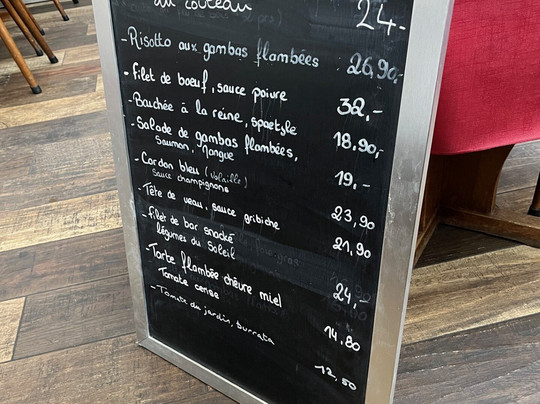 au couteau 24.-
- Risotto aux gambas flambées 26,90.-
- Filet de boeuf, sauce poivre 32,-
- Bouchée à la reine, spaetzle 18.90,-
- Salade de gambas flambées, 19,-
Saumon, Mangue
- Cordon bleu (volaille) 23,90
Sauce champignons
- Tête de veau, sauce gribiche 21,90
- Filet de bar snacké 24,-
légumes du Soleil
- Tarte flambée chèvre miel 14,80
Tomate cerise
- Tomate du jardin, burrata 12,50